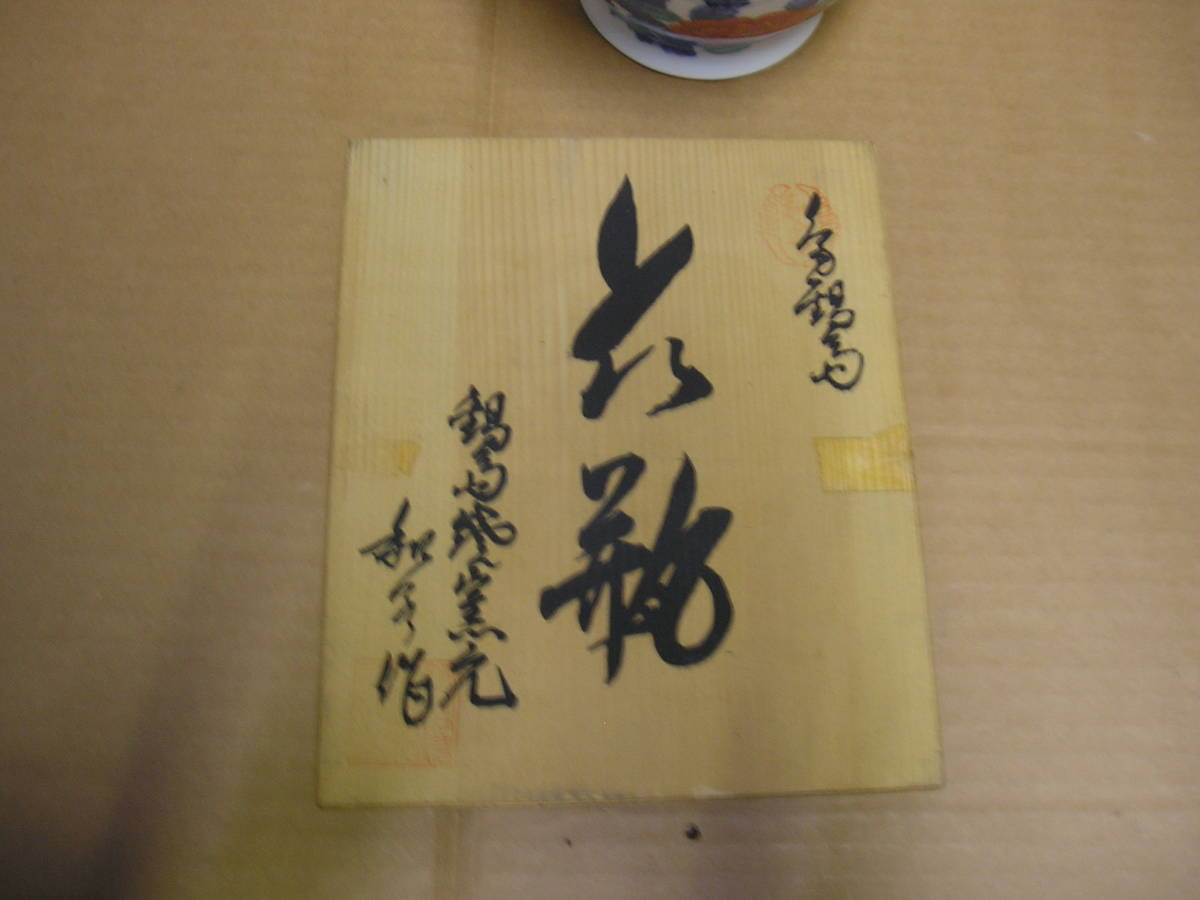 色鍋島
花瓶
鍋島焼窯元
作